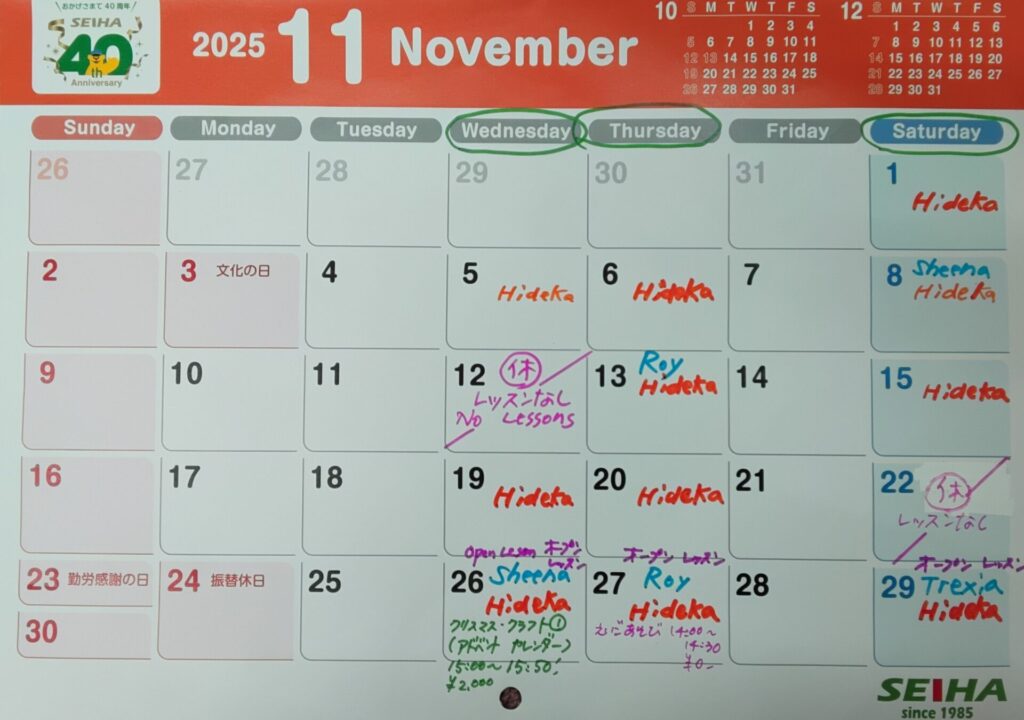 おかげさまで40周年
SEIHA
40th
Anniversary
2025 11 November
10 S M T W T F S
1 2 3 4
5 6 7 8 9 10 11
12 13 14 15 16 17 18
19 20 21 22 23 24 25
26 27 28 29 30 31
12 S M T W T F S
1 2 3 4 5 6
7 8 9 10 11 12 13
14 15 16 17 18 19 20
21 22 23 24 25 26 27
28 29 30 31
Sunday Monday Tuesday Wednesday Thursday Friday Saturday
26 27 28 29 30 31 1
Hideka
2 3 文化の日 4 5 6 7 8 Sheena
Hideka Hideka Hideka
9 10 11 12 休 13 Roy 14 15
レッスンなし Hideka Hideka
No Lessons
16 17 18 19 20 21 22 休
Hideka Hideka レッスンなし
Open Leson オープン レッスン オープン レッスン オープン レッスン
23 勤労感謝の日 24 振替休日 25 26 Sheena 27 Roy 28 29 Trexia
Hideka Hideka Hideka
30 クリスマス・クラフト① 14:00~
(アドベント カレンダー) 14:30
15:00~15:50 ¥0-
¥2,000
SEIHA
since 1985